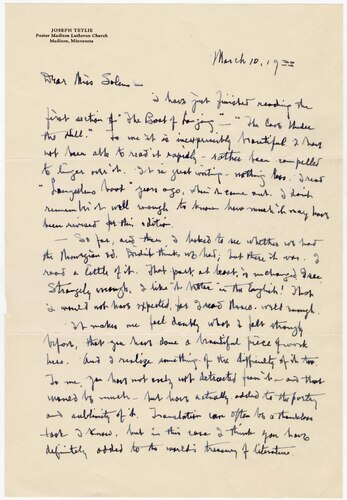 JOSEPH TETLIE
Pastor Madison Lutheran Church
Madison, Minnesota
March 10, 19
Dear Miss Solum —
I have just finished reading the
first section of "The Boat of Longing" — "The Cove Under
the Hill." To me it is inexpressibly beautiful. I have
not been able to read it rapidly – rather been compelled
to linger over it. It is great writing – nothing less. I read
"Længselens Baat" years ago, when it came out. I don't
remember it well enough to know how much it may have
been revised for this edition.
— So far, and then I looked to see whether we had
the Norwegian ed. Didn't think we had, but there it was. I
read a little of it. That part, at least, is unchanged I see.
Strangely enough, I like it better in the English! That
I would not have expected, for I read Norse well enough.
It makes me feel doubly what I felt strongly
before, that you have done a beautiful piece of work
here. And I realize something of the difficulty of it too.
To me, you have not only not detracted from it – and that
would be much – but have actually added to the poetry
and sublimity of it. Translation can often be a thankless
task I know, but in this case I think you have
definitely added to the world's treasury of literature.